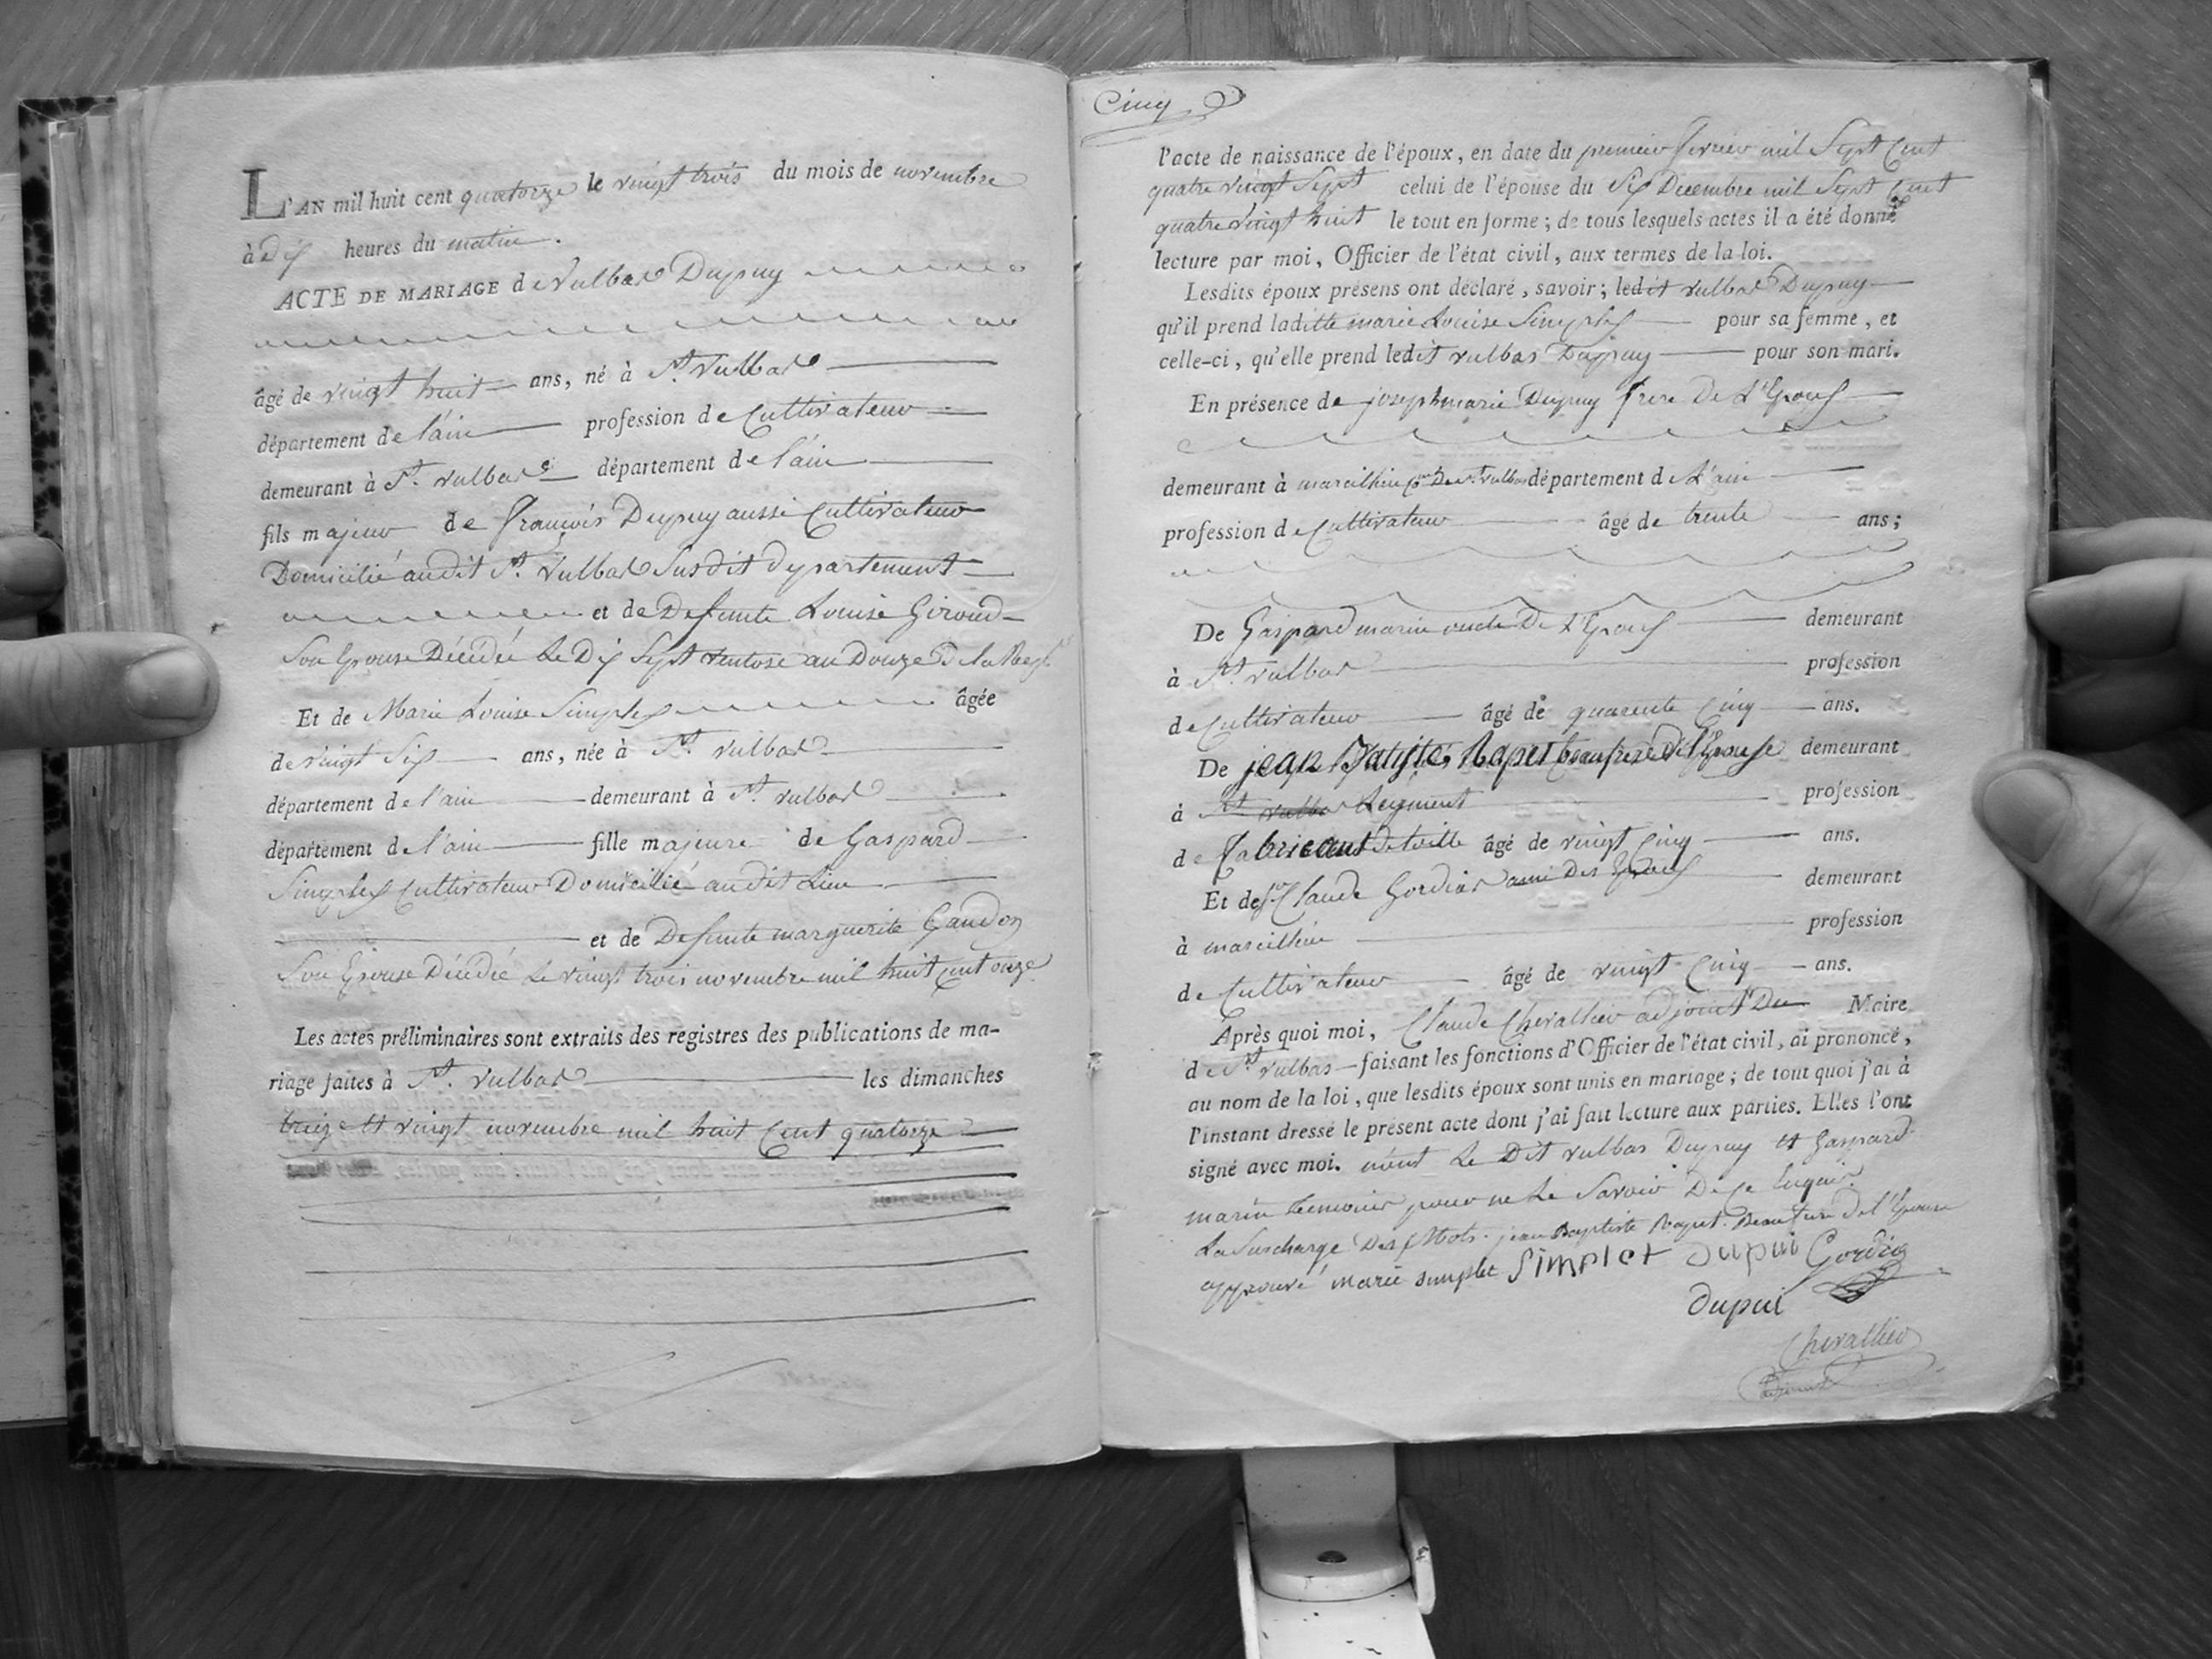 L'AN mil huit cent quatorze le vingt trois du mois de novembre
à Dix heures du matin.
ACTE DE MARIAGE de Vulbas Dupuy
âgé de vingt huit ans, né à St. Vulbas
département de l'ain profession de Cultivateur
demeurant à St. Vulbas département de l'ain
fils majeur de François Dupuy aussi Cultivateur
Domicilié audit St. Vulbas Susdit Département
et de Defunte Louise Giroud
Son Epouse Décédée Le Dix Sept ventose an Douze De la
Et de Marie Louise Simplex âgée
de vingt Six ans, née à St. Vulbas
département de l'ain demeurant à St. vulbas
département de l'ain fille majeure de Gaspard
Simplex Cultivateur Domicilié audit Lieu
et de Defunte marguerite Gandoz
Son Epouse Décédée Le vingt trois novembre mil huit cent onze
Les actes préliminaires sont extraits des registres des publications de ma-
riage faites à St. Vulbas les dimanches
treize et vingt novembre mil huit Cent quatorze
Cinq
l'acte de naissance de l'époux, en date du premier fevrier mil Sept Cent
quatre vingt Sept celui de l'épouse du Six Decembre mil Sept Cent
quatre vingt huit le tout en forme ; de tous lesquels actes il a été donné
lecture par moi, Officier de l'état civil, aux termes de la loi.
Lesdits époux présens ont déclaré, savoir ; ledit vulbas Dupuy
qu'il prend laditte marie Louise Simplex pour sa femme, et
celle-ci, qu'elle prend ledit vulbas Dupuy pour son mari.
En présence de joseph marie Dupuy frere De L'Epoux
demeurant à marcilhieu Cne De St. Vulbas département de L'ain
profession de Cultivateur âgé de trente ans ;
De Gaspard marin oncle De L'Epoux demeurant
à St. vulbas profession
de Cultivateur âgé de quarente Cinq ans.
De jean Batiste Rapet beaufrere de l'Epouse demeurant
à St vulbas Leyment profession
de fabricant De toille âgé de vingt Cinq ans.
Et de Sr Claude Gordiat ami Des Epoux demeurant
à marcilhieu profession
de Cultivateur âgé de vingt Cinq ans.
Après quoi moi, Claude Chevallier adjoint Du Maire
de St. Vulbas faisant les fonctions d'Officier de l'état civil, ai prononcé,
au nom de la loi, que lesdits époux sont unis en mariage ; de tout quoi j'ai à
l'instant dressé le présent acte dont j'ai fait lecture aux parties. Elles l'ont
signé avec moi. non Le Dit vulbas Dupuy et Gaspard
marin temoins pour ne Le Savoir De Ce Enquis.
La Surcharge Des Mots. jean Baptiste Rapet. Beaufrere De l'Epouse
approuvé marie simplet Simplet Dupui Gordia
dupui
Chevallier
adjoint